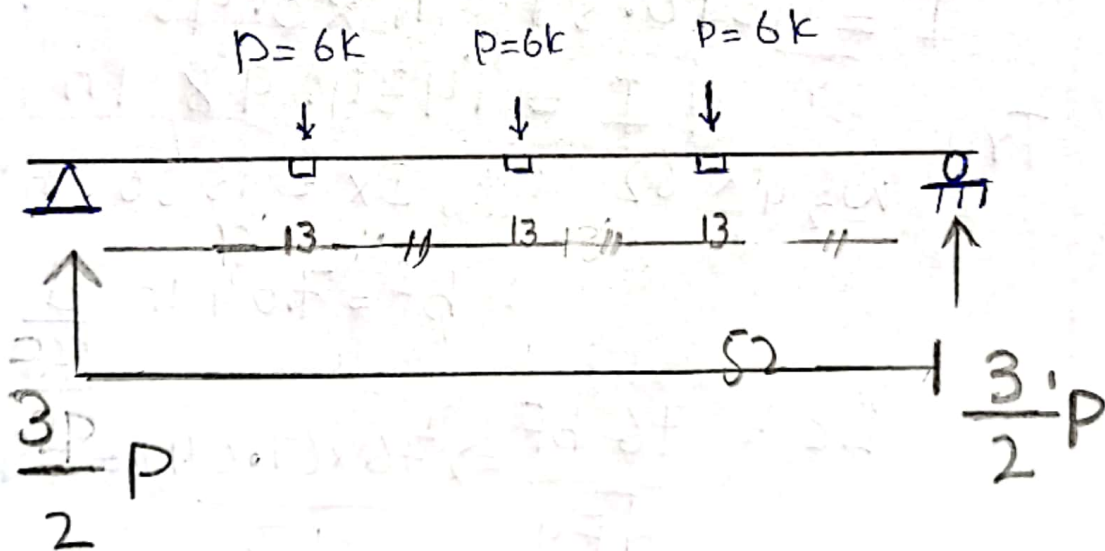 P= 6k P=6k P= 6k
13 13 13
52
3/2 P 3/2 P